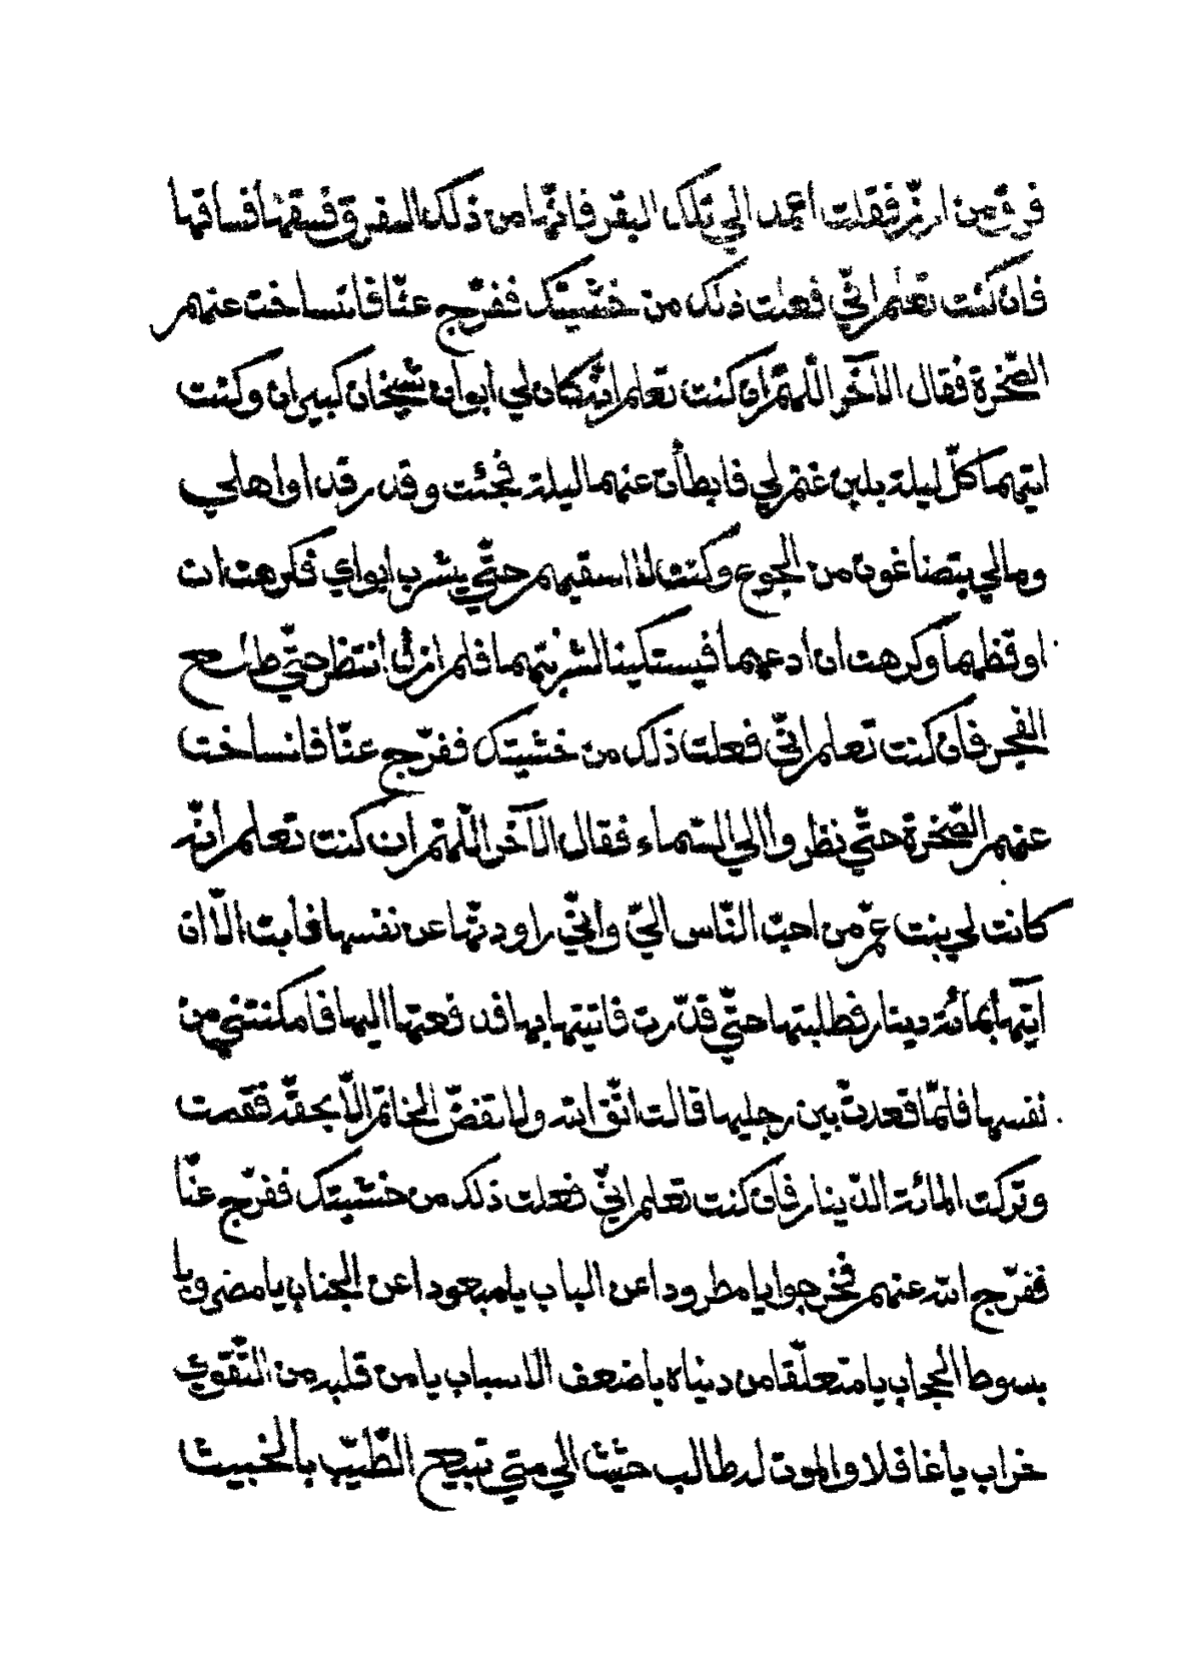 فرق من ارزّ فقلت اعمد الي تلك البقر فانّها من ذلك الفرق فسقها فساقها
فان كنت تعلم انّي فعلت ذلك من خشيتك ففرّج عنّا فانساخت عنهم
الصّخرة فقال الآخر اللّهمّ ان كنت تعلم انّه كان لي أبوان شيخان كبيران وكنت
اتيهما كلّ ليلة بلبن غنم لي فابطأت عنهما ليلة فجئت وقد رقدا واهلي
ومالي يتضاغون من الجوع وكنت لا اسقيهم حتّي يشرب ابواي فكرهت ان
اوقظهما وكرهت ان ادعهما فيستكينا لشربتهما فلم ازل انتظر حتّي طلع
الفجر فان كنت تعلم انّي فعلت ذلك من خشيتك ففرّج عنّا فانساخت
عنهم الصّخرة حتّي نظروا الي السّماء فقال الآخر اللّهمّ ان كنت تعلم انّه
كانت لي بنت عمّ من احبّ النّاس اليّ وانّي راودتها عن نفسها فابت الّا ان
آتيها بمائة دينار فطلبتها حتّي قدّرت فاتيتها بها فدفعتها اليها فامكنتني من
نفسها فلمّا قعدت بين رجليها قالت اتّق الله ولا تفضّ الخاتم الّا بحقّه فقمت
وتركت المائة الدّينار فان كنت تعلم انّي فعلت ذلك من خشيتك ففرّج عنّا
ففرّج الله عنهم فخرجوا يا مطرودا عن الباب يا مبعودا عن الجناب يا مضروبا
بسوط الحجاب يا متعلّقا من دنياه باضعف الاسباب يا من قلبه من التّقوي
خراب يا غافلا والموت له طالب حثيث الي متي تبيع الطّيّب بالخبيث